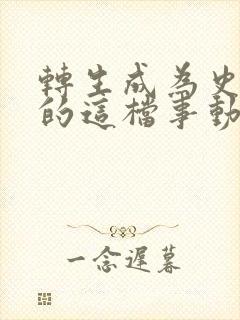 轉生成為史
的這檔事動
一念遲暮